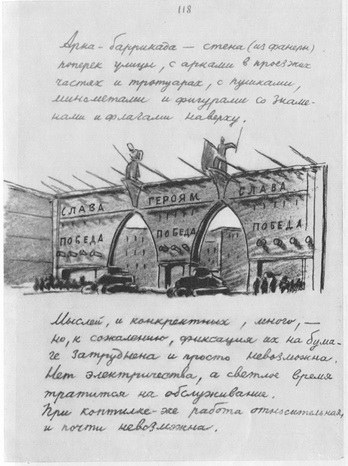 118
Арка-баррикада — стена (из фанеры)
поперек улицы, с арками в проезжих
частях и тротуарах, с пушками,
минометами и фигурами со знаме-
нами и флагами наверху.
СЛАВА ГЕРОЯМ СЛАВА
ПОБЕДА ПОБЕДА ПОБЕДА
Мыслей, и конкретных, много, —
но, к сожалению, фиксация их на бума-
ге затруднена и просто невозможна.
Нет электричества, а светлое время
тратится на обслуживание.
При коптилке-же работа относительная,
и почти невозможна.